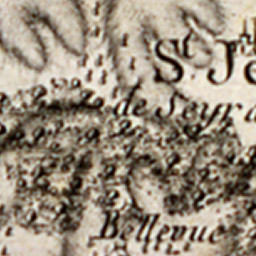 St Je
de Seyra
Bellevue